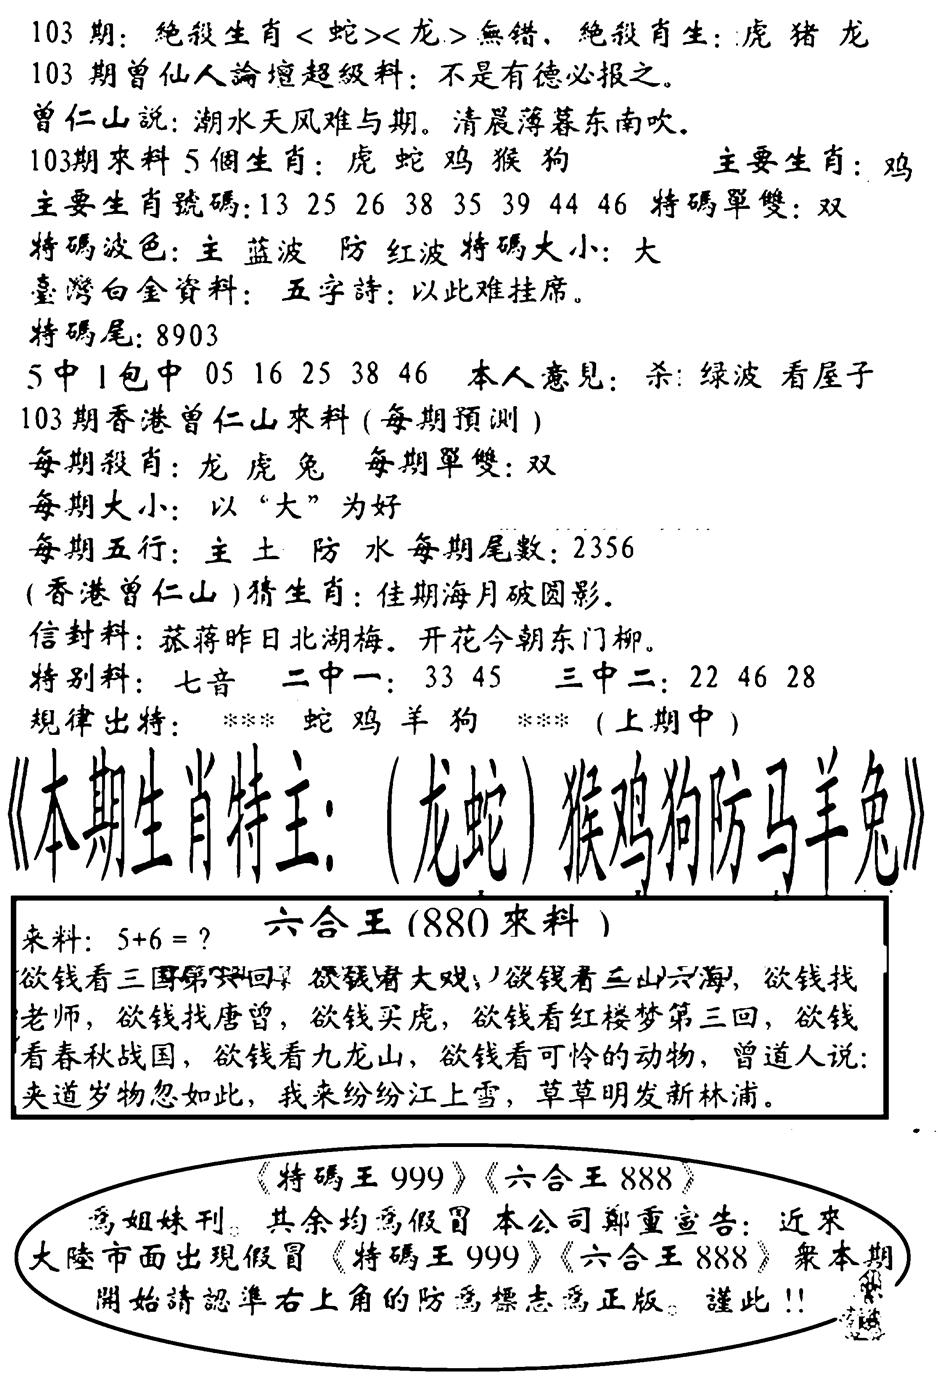 103 期: 絶殺生肖< 蛇><龙>無錯. 絶殺肖生: 虎 猪 龙
103 期曾仙人論壇超級料: 不是有德必报之。
曾仁山説: 潮水天风难与期。清晨薄暮东南吹.
103期來料 5 個生肖: 虎 蛇 鸡 猴 狗 主要生肖: 鸡
主要生肖號碼:13 25 26 38 35 39 44 46 特碼單雙: 双
特碼波色: 主 蓝波 防 红波 特碼大小: 大
臺灣白金資料: 五字詩: 以此难挂席。
特碼尾: 8903
5 中 1 包中 05 16 25 38 46 本人意見: 杀: 绿波 看屋子
103 期香港曾仁山來料 ( 每期預測 )
每期殺肖: 龙 虎 兔 每期單雙: 双
每期大小: 以“大”为好
每期五行: 主 土 防 水 每期尾數: 2356
(香港曾仁山)猜生肖: 佳期海月破圆影.
信封料: 菰蒋昨日北湖梅. 开花今朝东门柳。
特别料: 七音 二中一: 33 45 三中二: 22 46 28
規律出特: *** 蛇 鸡 羊 狗 *** (上期中)
《本期生肖特主: (龙蛇) 猴鸡狗防马羊兔》
六合王(880來料 )
来料: 5+6 = ?
欲钱看三国第六回, 欲钱看大戏, 欲钱看三山六海, 欲钱找
老师, 欲钱找唐曾, 欲钱买虎, 欲钱看红楼梦第三回, 欲钱
看春秋战国, 欲钱看九龙山, 欲钱看可怜的动物, 曾道人说:
夹道岁物忽如此, 我来纷纷江上雪, 草草明发新林浦。
《特碼王 999》《六合王 888》
爲姐妹刊。其余均爲假冒 本公司鄭重宣告: 近來
大陸市面出現假冒《特碼王 999》《六合王 888》衆本期
開始請認準右上角的防爲標志爲正版。謹此 !!